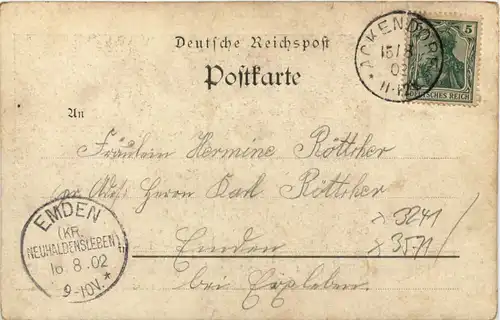 Deutsche Reichspost
Postkarte
ACKENDORF
15/8
02
11-12
5
DEUTSCHES REICH
An
Fräulein Hermine Röttcher
per Adr. Herrn Karl Röttcher
x 3241
x 3571
Emden
bei Erxleben.
EMDEN
(KR.
NEUHALDENSLEBEN)
16.8.02
9-10V.